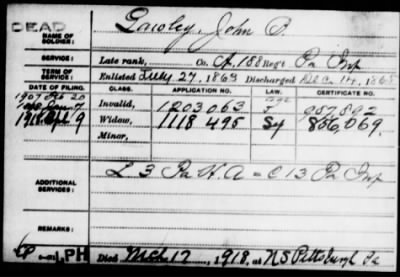 DEAD
NAME OF SOLDIER: John B.
SERVICE: Late rank, Co. A, 188 Regt Pa Inf
TERM OF SERVICE: Enlisted July 27, 1863 Discharged Dec. 14, 1865
DATE OF FILING. CLASS. APPLICATION NO. LAW. CERTIFICATE NO.
1907 Invalid, 1203063
1918 Apl 9 Widow, 1118495 866,069.
Minor,
ADDITIONAL SERVICES: L 3 Pa H A = C 13 Pa Inf
REMARKS:
LPH Died Mch 17, 1918, at N S Pittsburgh Pa